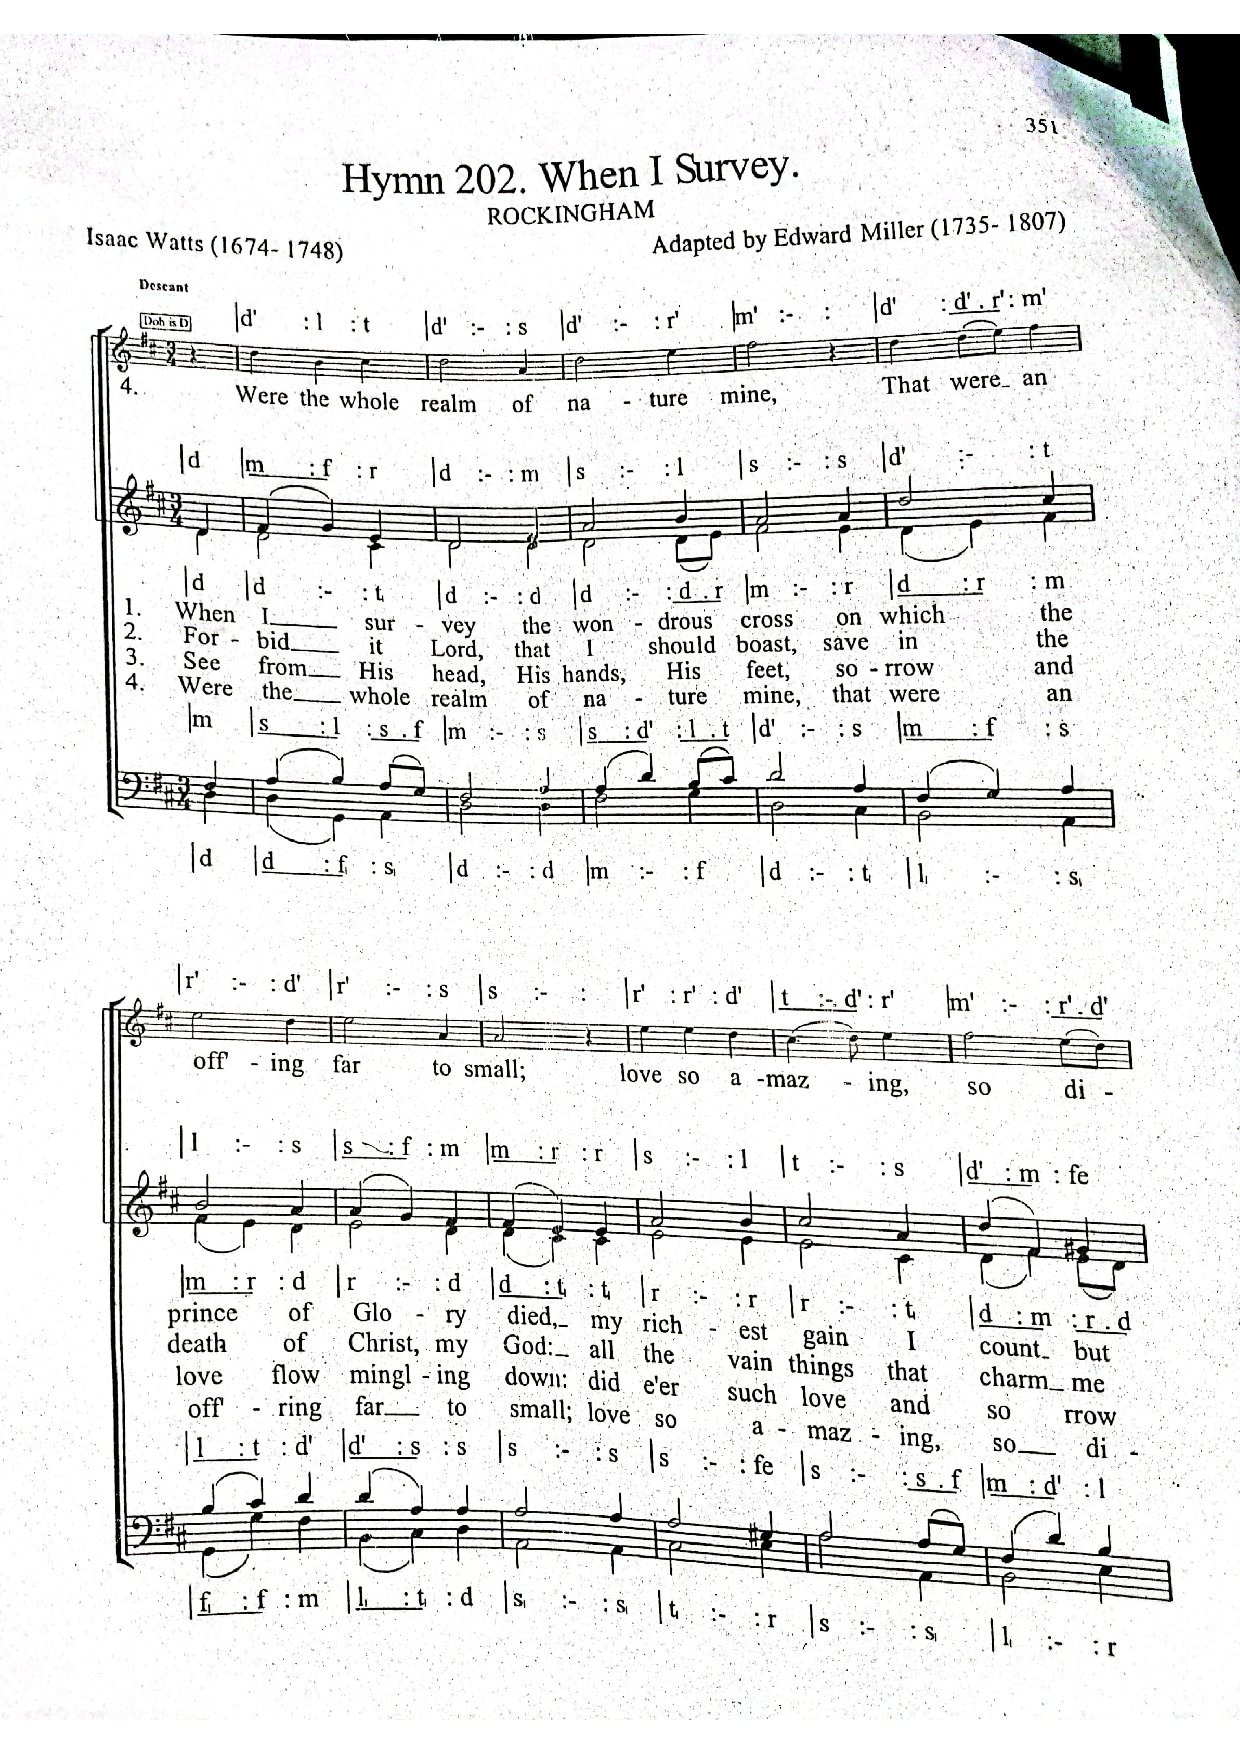 351
Hymn 202. When I Survey.
ROCKINGHAM
Isaac Watts (1674- 1748)
Adapted by Edward Miller (1735- 1807)
Descant
Doh is D
|d' :l :t |d' :- :s |d' :- :r' |m' :- : |d' :d'.r':m'
4. Were the whole realm of na - ture mine, That were_ an
|d |m :f :r |d :- :m |s :- :l |s :- :s |d' :- :t
|d |d :- :t, |d :- :d |d :- :d.r |m :- :r |d :r :m
1. When I____ sur - vey the won - drous cross on which the
2. For - bid____ it Lord, that I should boast, save in the
3. See from___ His head, His hands, His feet, so - rrow and
4. Were the____ whole realm of na - ture mine, that were an
|m |s :l :s.f |m :- :s |s :d' :l.t |d' :- :s |m :f :s
|d |d :f, :s, |d :- :d |m :- :f |d :- :t, |l, :- :s,
|r' :- :d' |r' :- :s |s :- : |r' :r' :d' |t :-.d':r' |m' :- :r'.d'
off' - ing far to small; love so a -maz - ing, so di -
|l :- :s |s :f :m |m :r :r |s :- :l |t :- :s |d' :m :fe
|m :r :d |r :- :d |d :t, :t, |r :- :r |r :- :t, |d :m :r.d
prince of Glo - ry died,_ my rich - est gain I count_ but
death of Christ, my God:_ all the vain things that charm_ me
love flow mingl - ing down: did e'er such love and so rrow
off' - ring far___ to small; love so a - maz - ing, so___ di -
|l :t :d' |d' :s :s |s :- :s |s :- :fe |s :- :s.f |m :d' :l
|f, :f :m |l, :t, :d |s, :- :s, |t, :- :r |s :- :s, |l, :- :r